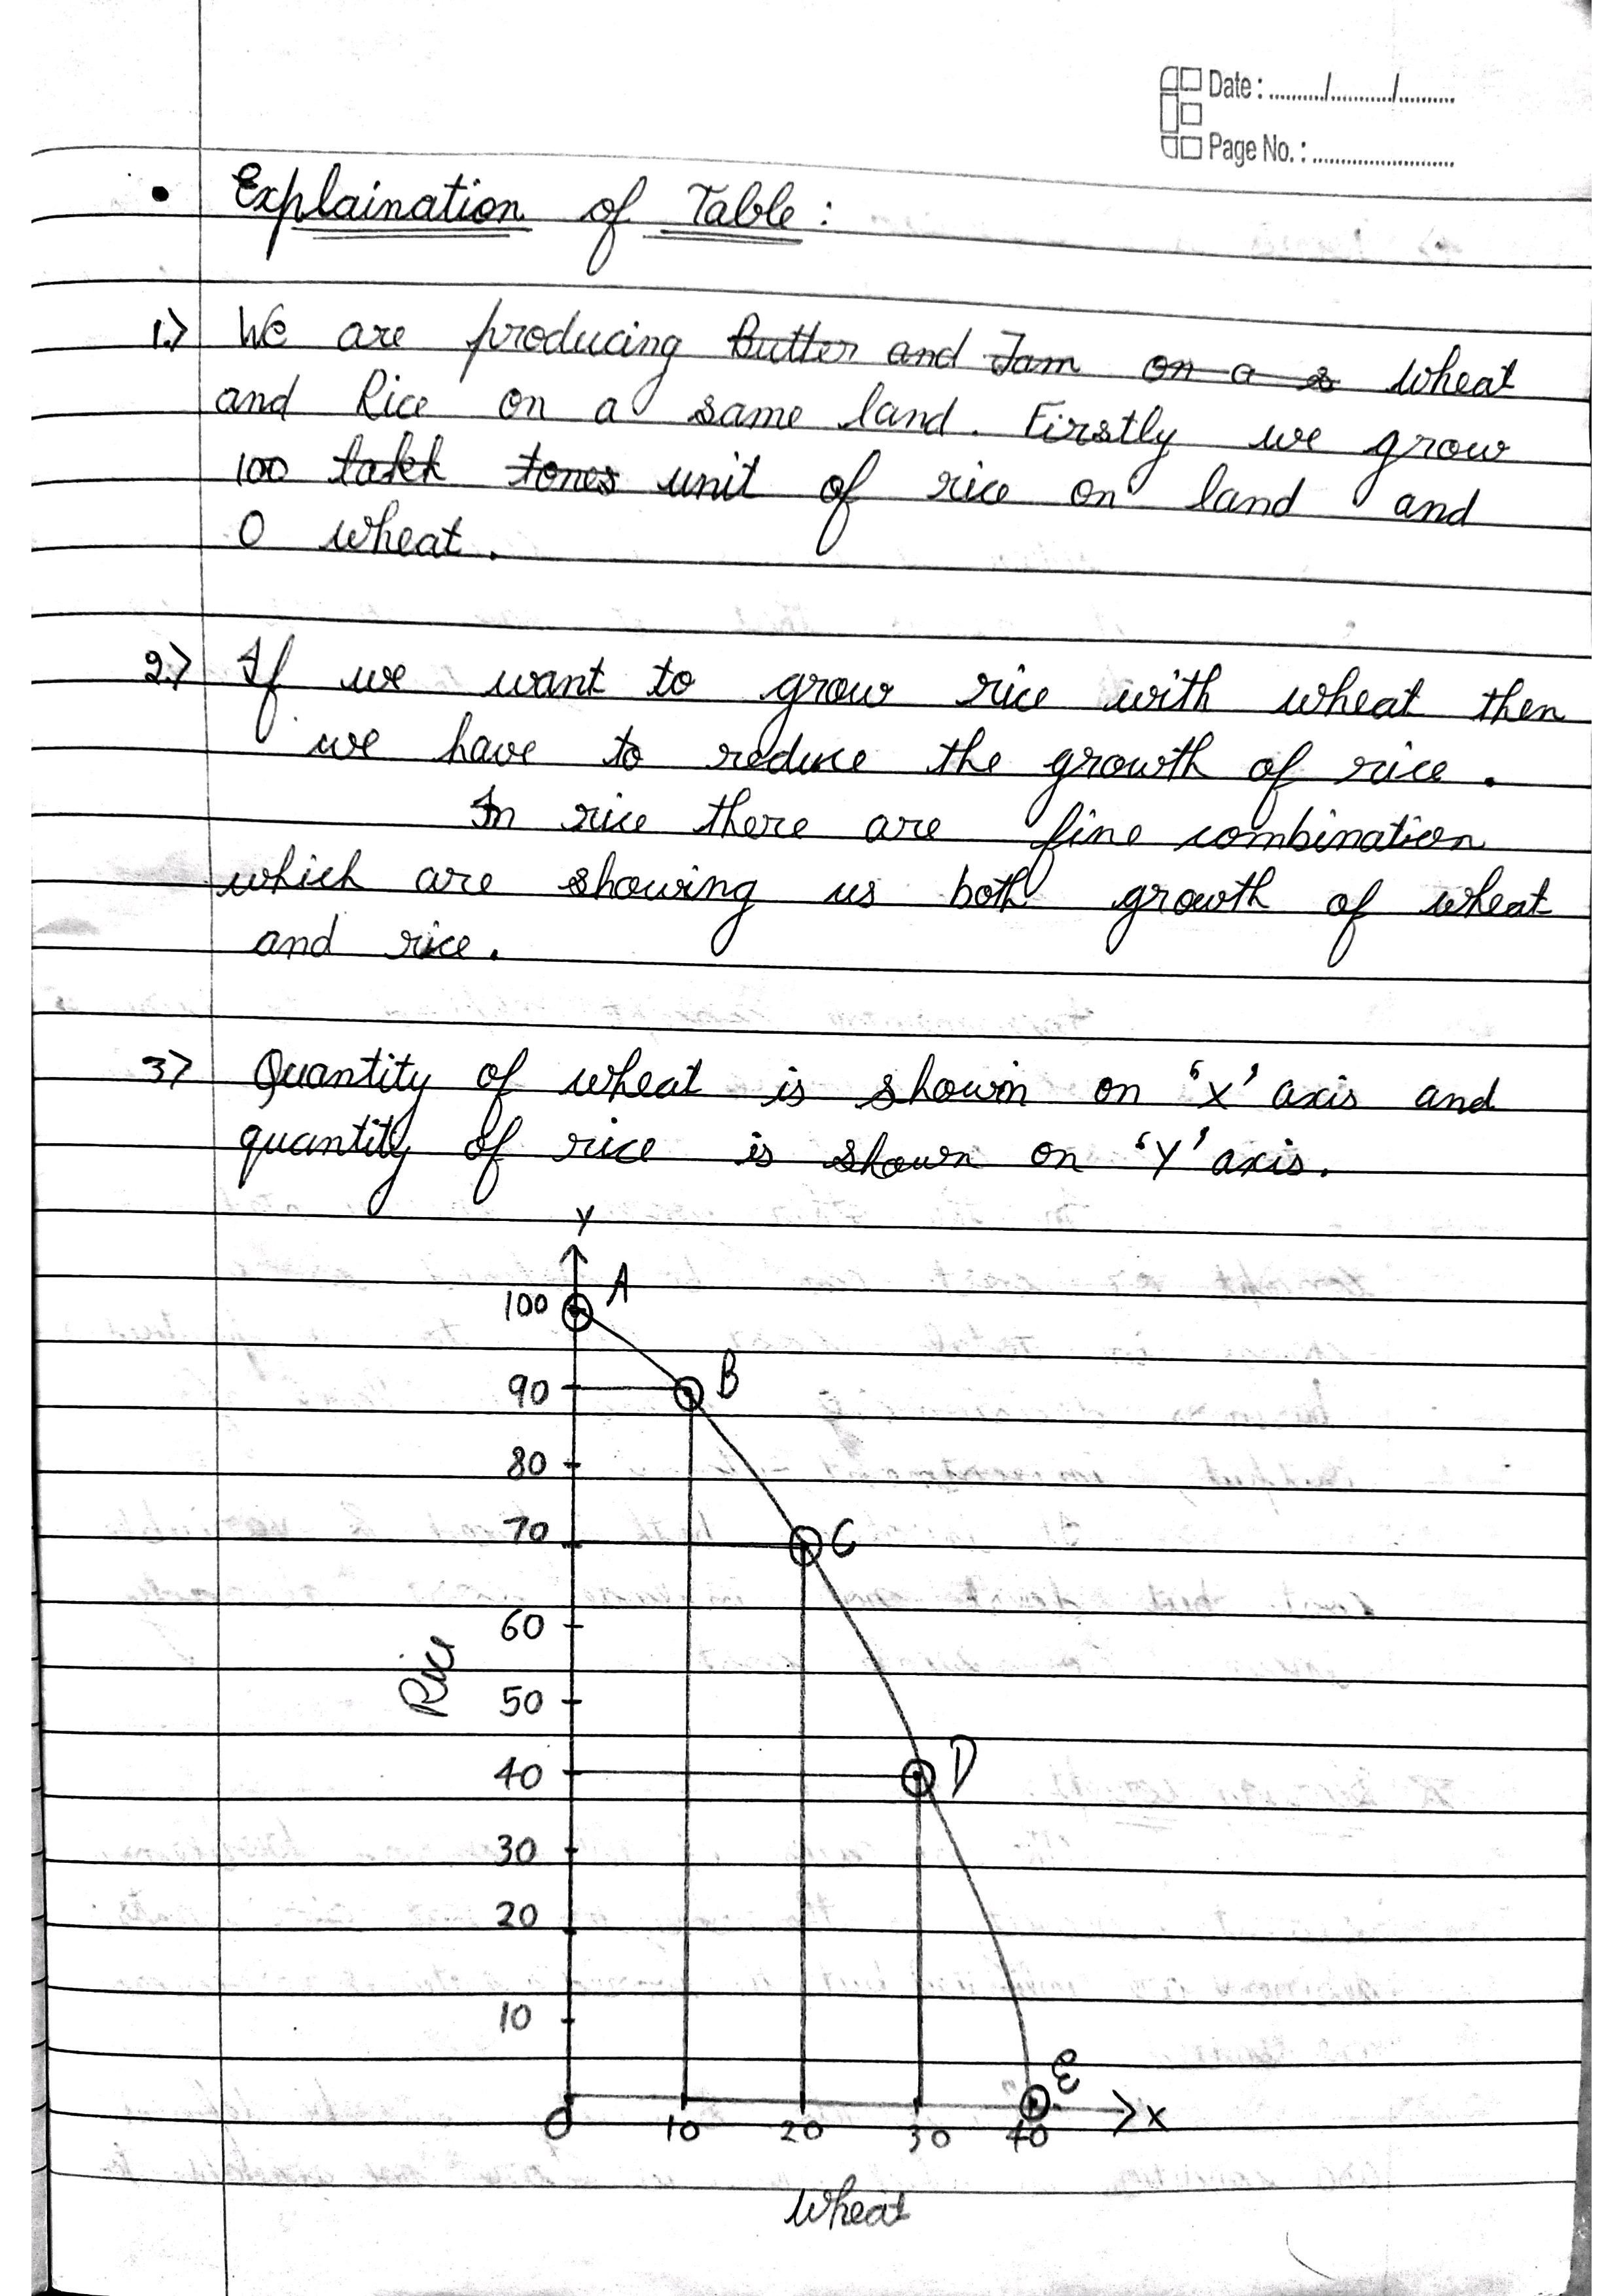 Date : ........../.........../..........
Page No. : .........................
• Explaination of Table :
1.) We are producing Butter and Jam on a s wheat
and Rice on a same land. Firstly we grow
100 tones unit of rice on land and
0 wheat.
2.) If we want to grow rice with wheat then
we have to reduce the growth of rice.
In rice there are fine combination
which are showing us both growth of wheat
and rice.
3) Quantity of wheat is shown on 'X' axis and
quantity of rice is shown on 'Y' axis.
Y
100 A
90 B
80
70 C
60
Rice
50
40 D
30
20
10
E
O 10 20 30 40 X
wheat